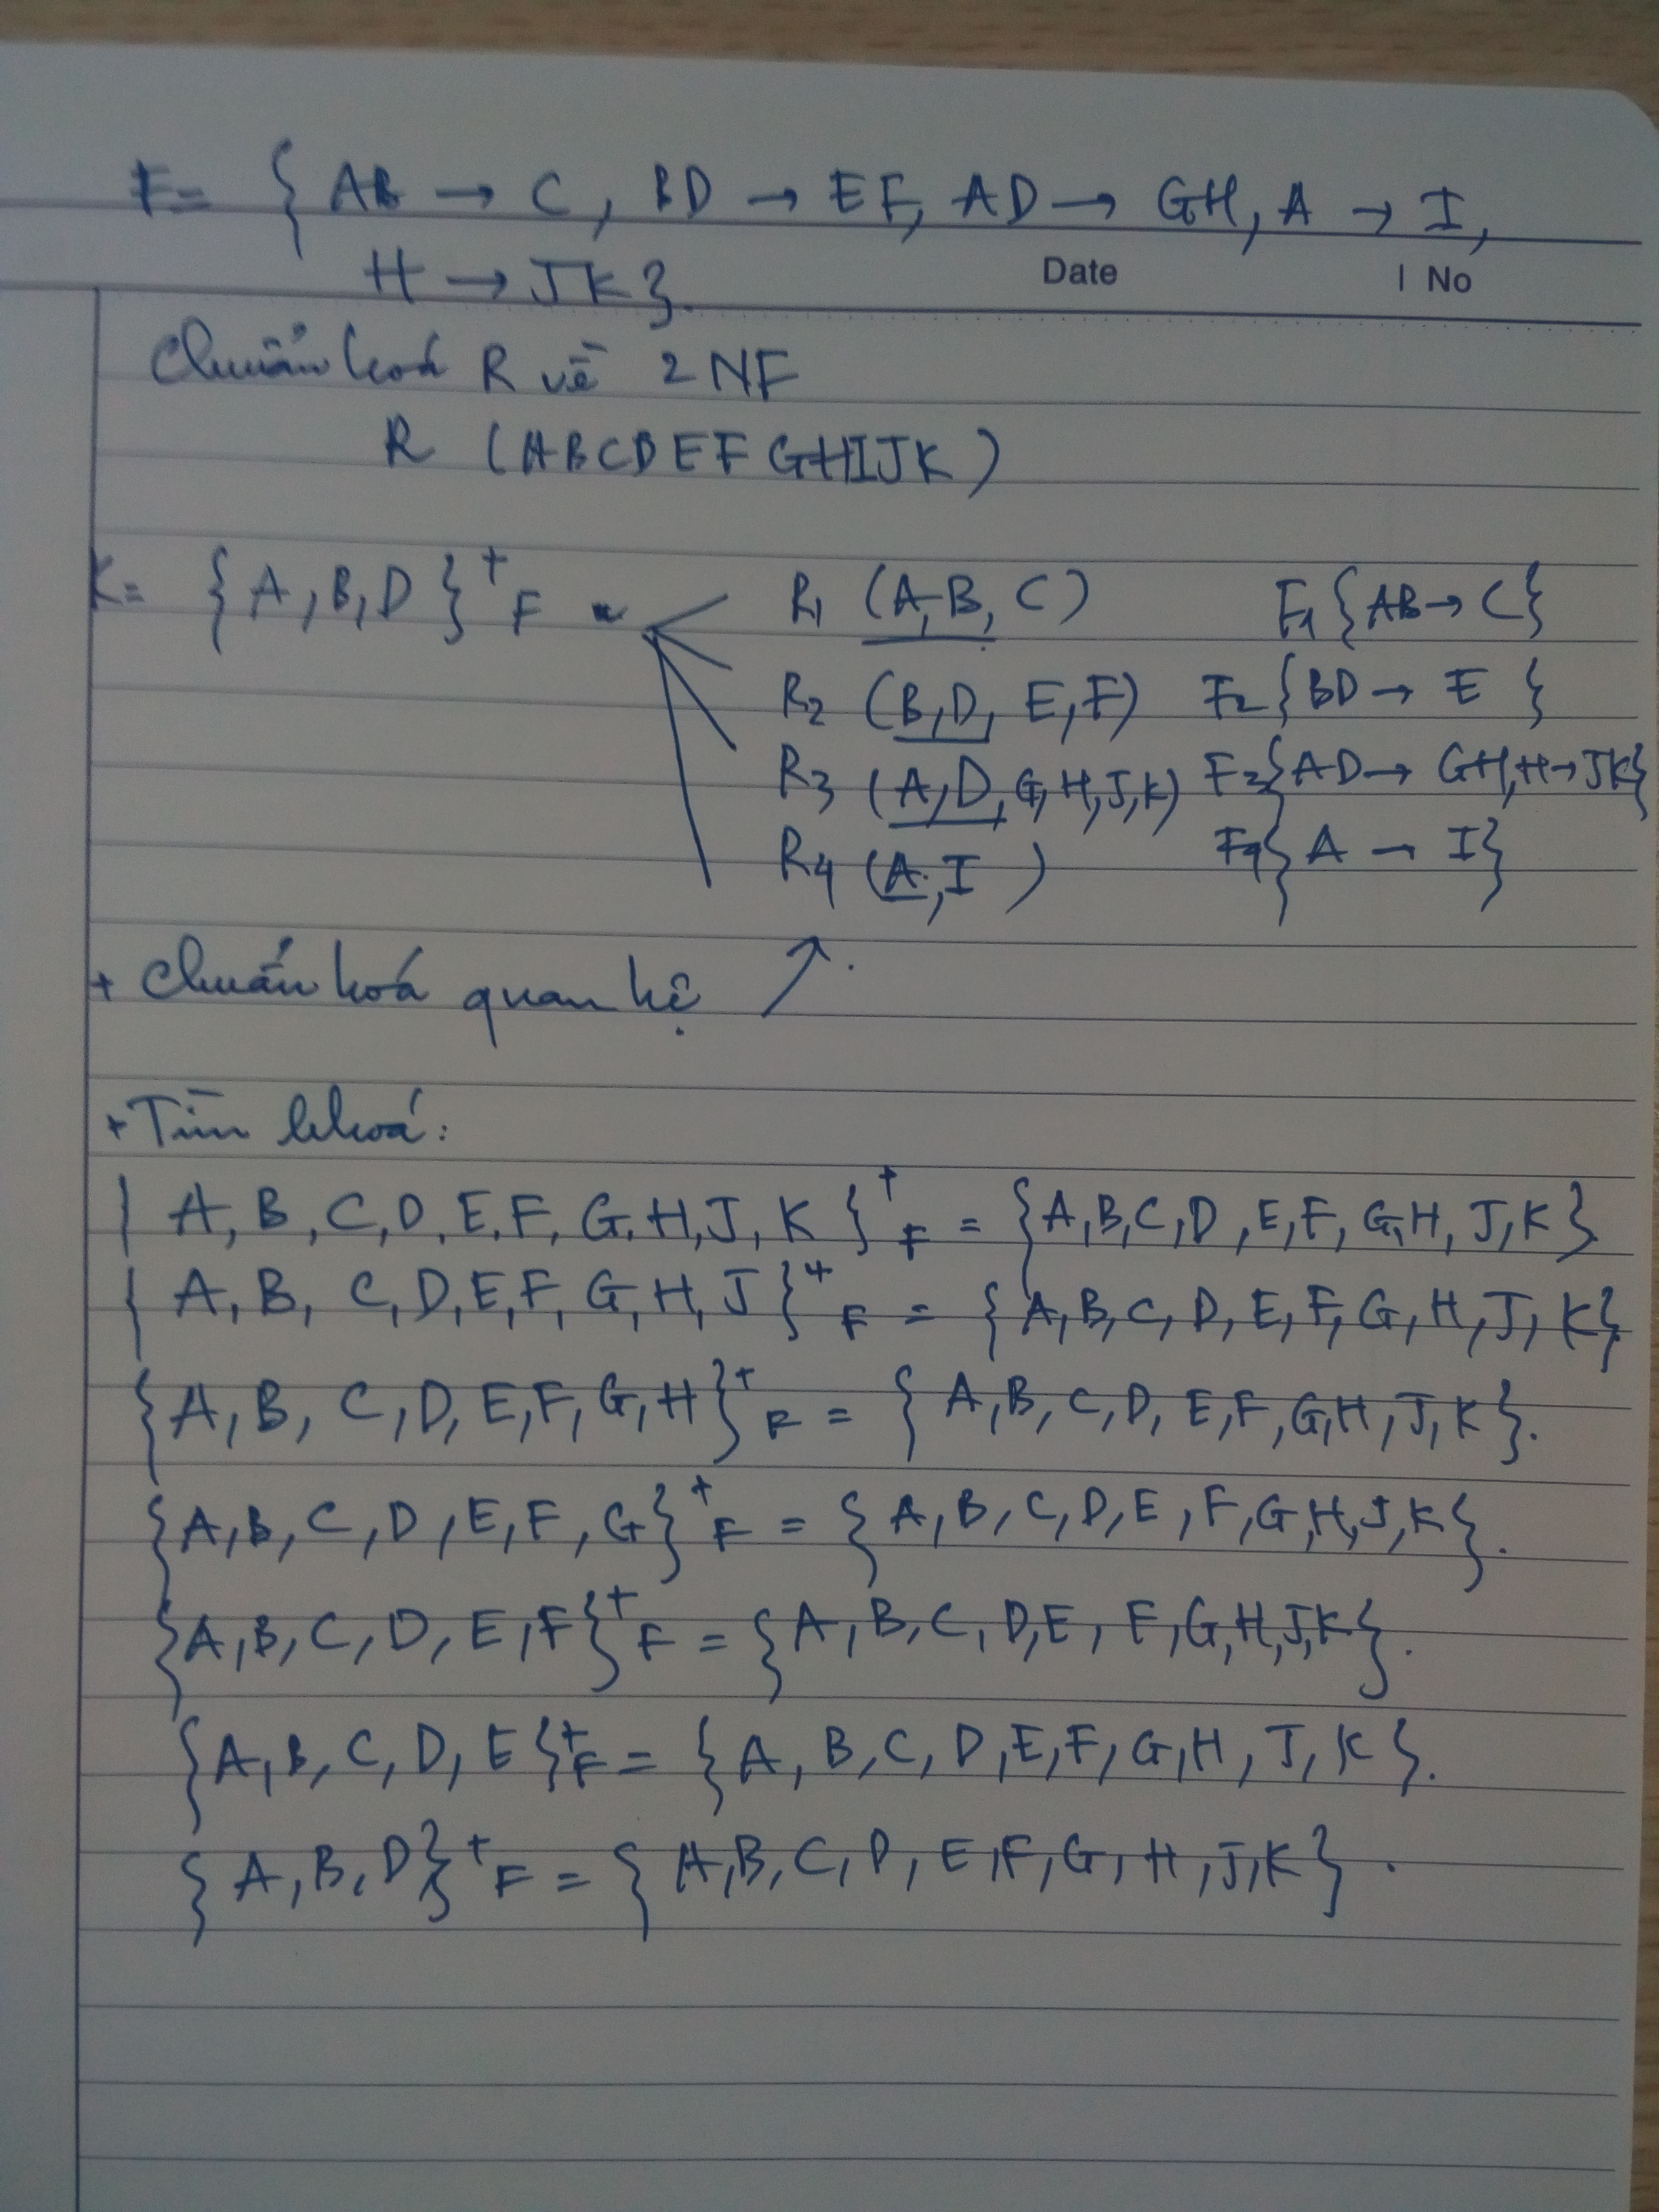 F = { AB → C, BD → EF, AD → GH, A → I,
H → JK }.
Date | No
Chuẩn hoá R về 2NF
R (ABCDEFGHIJK)
K = {A, B, D}⁺F
R1 (A, B, C) F1 {AB → C}
R2 (B, D, E, F) F2 {BD → E }
R3 (A, D, G, H, J, K) F3 {AD → GH, H → JK}
R4 (A, I ) F4 { A → I}
+ Chuẩn hoá quan hệ ↗.
+ Tìm khoá:
{ A, B, C, D, E, F, G, H, J, K }⁺F = {A, B, C, D, E, F, G, H, J, K }
{ A, B, C, D, E, F, G, H, J }⁺F = { A, B, C, D, E, F, G, H, J, K}
{A, B, C, D, E, F, G, H}⁺F = { A, B, C, D, E, F, G, H, J, K }.
{A, B, C, D, E, F, G}⁺F = { A, B, C, D, E, F, G, H, J, K }.
{A, B, C, D, E, F}⁺F = {A, B, C, D, E, F, G, H, J, K }.
{A, B, C, D, E }⁺F = { A, B, C, D, E, F, G, H, J, K }.
{ A, B, D}⁺F = { A, B, C, D, E, F, G, H, J, K } .